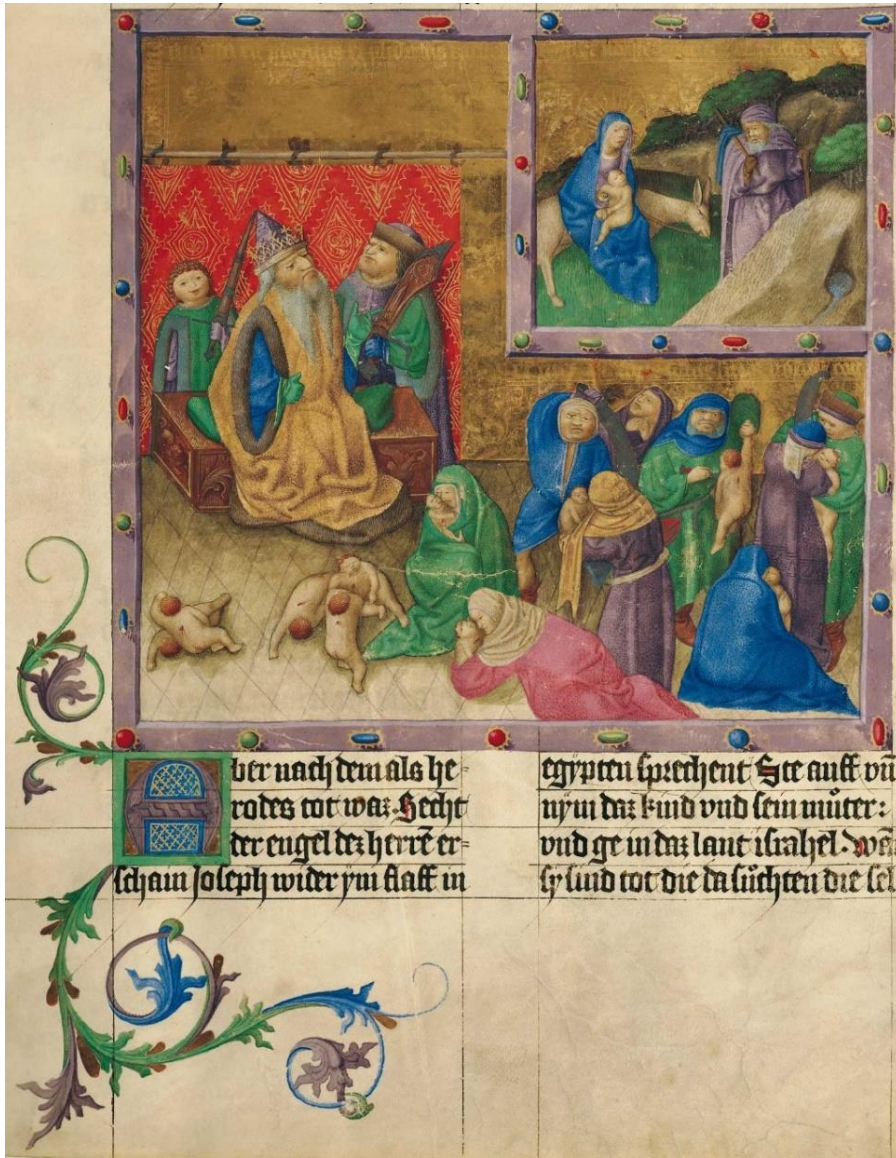 Aber nach dem als he-
rodes tot waz. Secht
der engel dez herrē er-
schain Joseph wider ym slaff in
egypten sprechent Ste auff vn̄
nym daz kind vnd sein můter:
vnd ge in daz lant israhel. wē
sy sind tot die da sůchten die sel